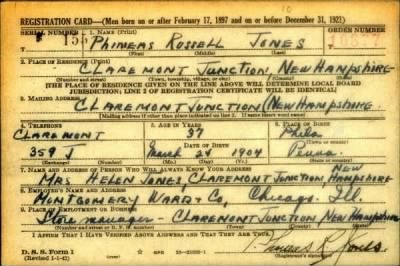 10
REGISTRATION CARD—(Men born on or after February 17, 1897 and on or before December 31, 1921)
SERIAL NUMBER 1. NAME (Print) ORDER NUMBER
PHINEAS RUSSELL JONES
(First) (Middle) (Last)
2. PLACE OF RESIDENCE (Print)
CLAREMONT JUNCTION, NEW HAMPSHIRE
(Number and street) (Town, township, village, or city) (County) (State)
[THE PLACE OF RESIDENCE GIVEN ON THE LINE ABOVE WILL DETERMINE LOCAL BOARD
JURISDICTION; LINE 2 OF REGISTRATION CERTIFICATE WILL BE IDENTICAL]
3. MAILING ADDRESS
CLAREMONT JUNCTION, NEW HAMPSHIRE.
[Mailing address if other than place indicated on line 2. If same insert word same]
4. TELEPHONE 5. AGE IN YEARS 6. PLACE OF BIRTH
CLAREMONT 37 Phila
DATE OF BIRTH (Town or county)
359 J March 24 1904 Penna
(Exchange) (Number) (Mo.) (Day) (Yr.) (State or country)
7. NAME AND ADDRESS OF PERSON WHO WILL ALWAYS KNOW YOUR ADDRESS NEW
MRS. HELEN JONES, CLAREMONT JUNCTION, HAMPSHIRE
8. EMPLOYER'S NAME AND ADDRESS
MONTGOMERY WARD & Co, Chicago. Ill.
9. PLACE OF EMPLOYMENT OR BUSINESS
Store manager - CLAREMONT JUNCTION, NEW HAMPSHIRE
(Number and street or R. F. D. number) (Town) (County) (State)
I AFFIRM THAT I HAVE VERIFIED ABOVE ANSWERS AND THAT THEY ARE TRUE.
D. S. S. Form 1
(Revised 1-1-42) (over) GPO Phineas R. Jones
(Registrant's signature)